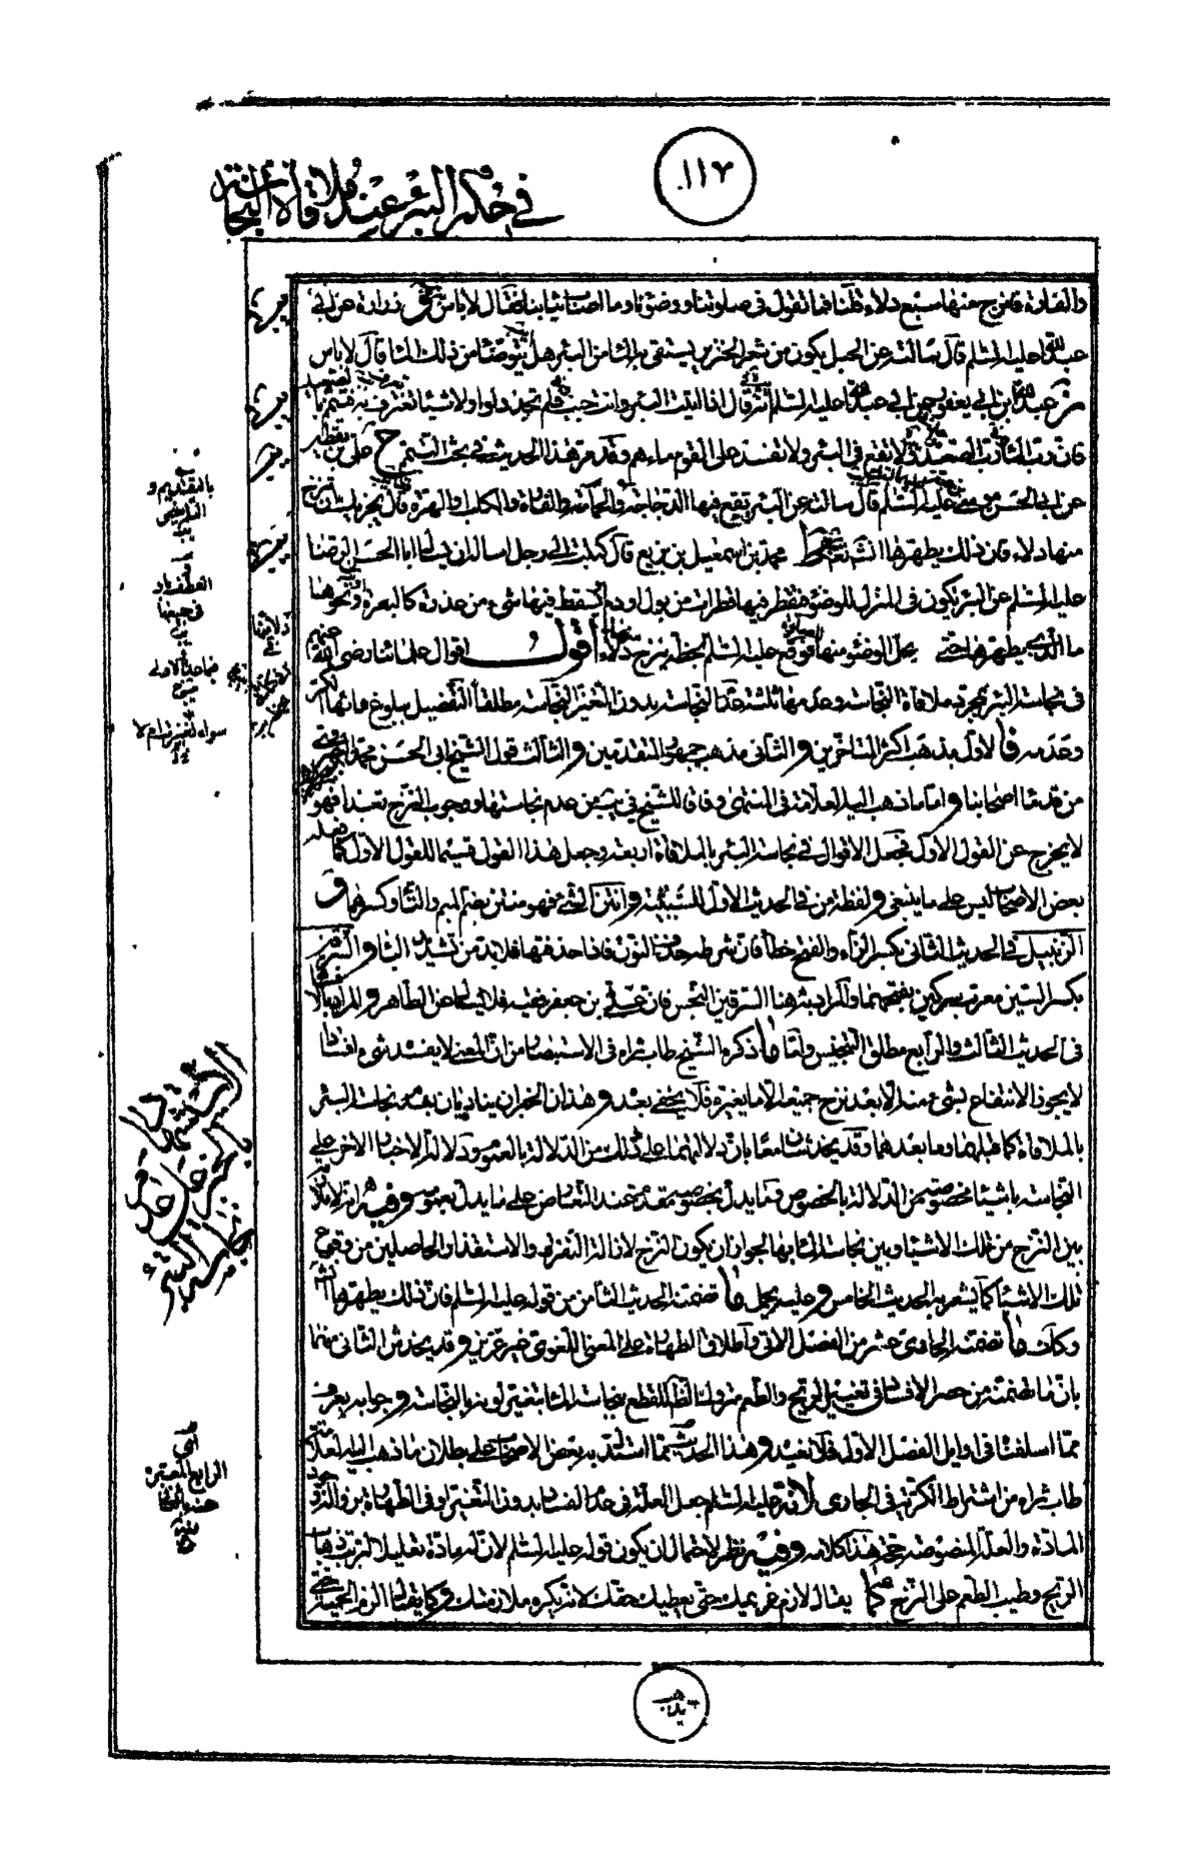 ١١٧
في حكم البئر عند ملاقاة النجاسة
والفارة فانزح منها سبع دلاء قلنا فما تقول في صلوتنا ووضوئنا وما اصاب ثيابنا فقال لا باس زرارة عن ابي
عبد الله عليه السلم قال سالته عن الحبل يكون من شعر الخنزير يستقى به الماء من البئر هل يتوضا من ذلك الماء قال لا باس
عبد الله بن ابي يعفور عن ابي عبد الله عليه السلم انه قال اذا اتيت البئر وانت جنب فلم تجد دلوا ولا شيئا تغترف به فتيمم بالصعيد
فان رب الماء رب الصعيد ولا تقع في البئر ولا تفسد على القوم ماءهم وقد مر هذا الحديث في بحث التيمم ح علي بن يقطين
عن ابي الحسن موسى عليه السلم قال سالته عن البئر يقع فيها الدجاجة والحمامة والفارة والكلب والهرة فقال يجزيك ان تنزح
منها دلاء فان ذلك يطهرها انشاء الله محمد بن اسمعيل بن بزيع قال كتبت الى رجل اساله ان يسال ابا الحسن الرضا
عليه السلم عن البئر يكون في المنزل للوضوء فقطر فيها قطرات من بول او دم او يسقط فيها شيء من عذرة كالبعرة ونحوها
ما الذي يطهرها حتى يحل الوضوء منها فوقع عليه السلم بخطه ينزح منها دلاء اقول اقوال علمائنا رضي الله عنهم
في نجاسة البئر بمجرد ملاقاة النجاسة وعدمها ثلثة عدم النجاسة بدون التغير النجاسة مطلقا التفصيل ببلوغ مائها الكر
وعدمه فالاول مذهب اكثر المتاخرين والثاني مذهب جمهور المتقدمين والثالث قول الشيخ ابي الحسن محمد
من قدماء اصحابنا واما ما ذهب اليه العلامة في المنتهى وفاقا للشيخ في يب من عدم نجاستها ووجوب النزح تعبدا فهو
لا يخرج عن القول الاول فجعل الاقوال في نجاسة البئر بالملاقاة اربعة وجعل هذا القول قسيما للقول الاول كما فعله
بعض الاصحاب ليس على ما ينبغي ولفظة من في الحديث الاول للسببية وانتن الشيء فهو منتن بضم الميم والتاء وكسرهما و
الزنبيل في الحديث الثاني بكسر الزاء والفتح خطا فان شرطه حذف النون فاذا حذفتها فلا بد من تشديد الباء والسرقين
بكسر السين معرب سركين بفتحهما والمراد به هنا السرقين النجس فان علي بن جعفر فقيه فلا يسال عن الطاهر والمراد بالا
في الحديث الثالث والرابع مطلق التنجيس واما ما ذكره الشيخ طاب ثراه في الاستبصار من ان المعنى لا يفسده شيء افسادا
لا يجوز الانتفاع بشيء منه الا بعد نزح جميعه الا ما يغيره فلا يخفى بعده وهذان الخبران يناديان بعدم نجاسة البئر
بالملاقاة كما قبلهما وما بعدهما وقد يخدشان معا بان دلالتهما على ذلك من الدلالة بالعموم ودلالة الاخبار الاخر على
النجاسة باشياء مخصوصة من الدلالة بالخصوص وما يدل بخصوصه مقدم عند التعارض على ما يدل بعمومه وفيه انه لا ملازمة
بين النزح من تلك الاشياء وبين نجاسة الماء بها لجواز ان يكون النزح لازالة النفرة والاستقذار الحاصلين من وقوع
تلك الاشياء كما يشعر به الحديث الخامس وعليه يحمل ما تضمنه الحديث الثامن من قوله عليه السلم فان ذلك يطهرها انشاء الله
وكذلك ما تضمنه الحادي عشر من الفصل الاتي واطلاق الطهارة على المعنى اللغوي غير عزيز وقد يخدش الثاني منهما
بان ما تضمنه من حصر الافساد في تغيير الريح والطعم متروك الظاهر للقطع بنجاسة الماء بتغير لونه بالنجاسة وجوابه يعرف
مما اسلفناه في اوايل الفصل الاول فلا نعيده وهذا الحديث مما استدل به بعض الاصحاب على بطلان ما ذهب اليه العلامة
طاب ثراه من اشتراط الكرية في الجاري لانه عليه السلم جعل العلة في عدم الفساد بدون التغير او في الطهارة بزواله وجود
المادة والعلة المنصوصة حجة هذا كلامه وفيه نظر لاحتمال ان يكون قوله عليه السلم لان له مادة تعليلا لترتب ذهاب
الريح وطيب الطعم على النزح كما يقال لازم غريمك حتى يعطيك حقك لانه يكره ملازمتك وكما يقال الزم الحمية حتى
بالتقديم و
العطف باو
سواء تغيرت ام لا
الرابع المعتبرة